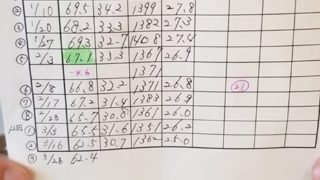 ② 1/10 69.5 34.2 1399 27.8
③ 1/20 68.2 33.3 1382 27.3
④ 1/27 69.3 32.7 1408 27.4
⑤ 2/3 67.1 33.3 1367 26.9
-4.6 1371
⑥ 2/8 66.8 32.2 1371 26.8 ㉑
⑦ 2/17 67.2 31.4 1383 26.9
⑧ 2/23 65.7 30.0 1361 26.0
① 3/5 65.5 31.6 1351 26.2
② 3/16 62.5 30.7 1362 25.0
③ 3/28 62.4